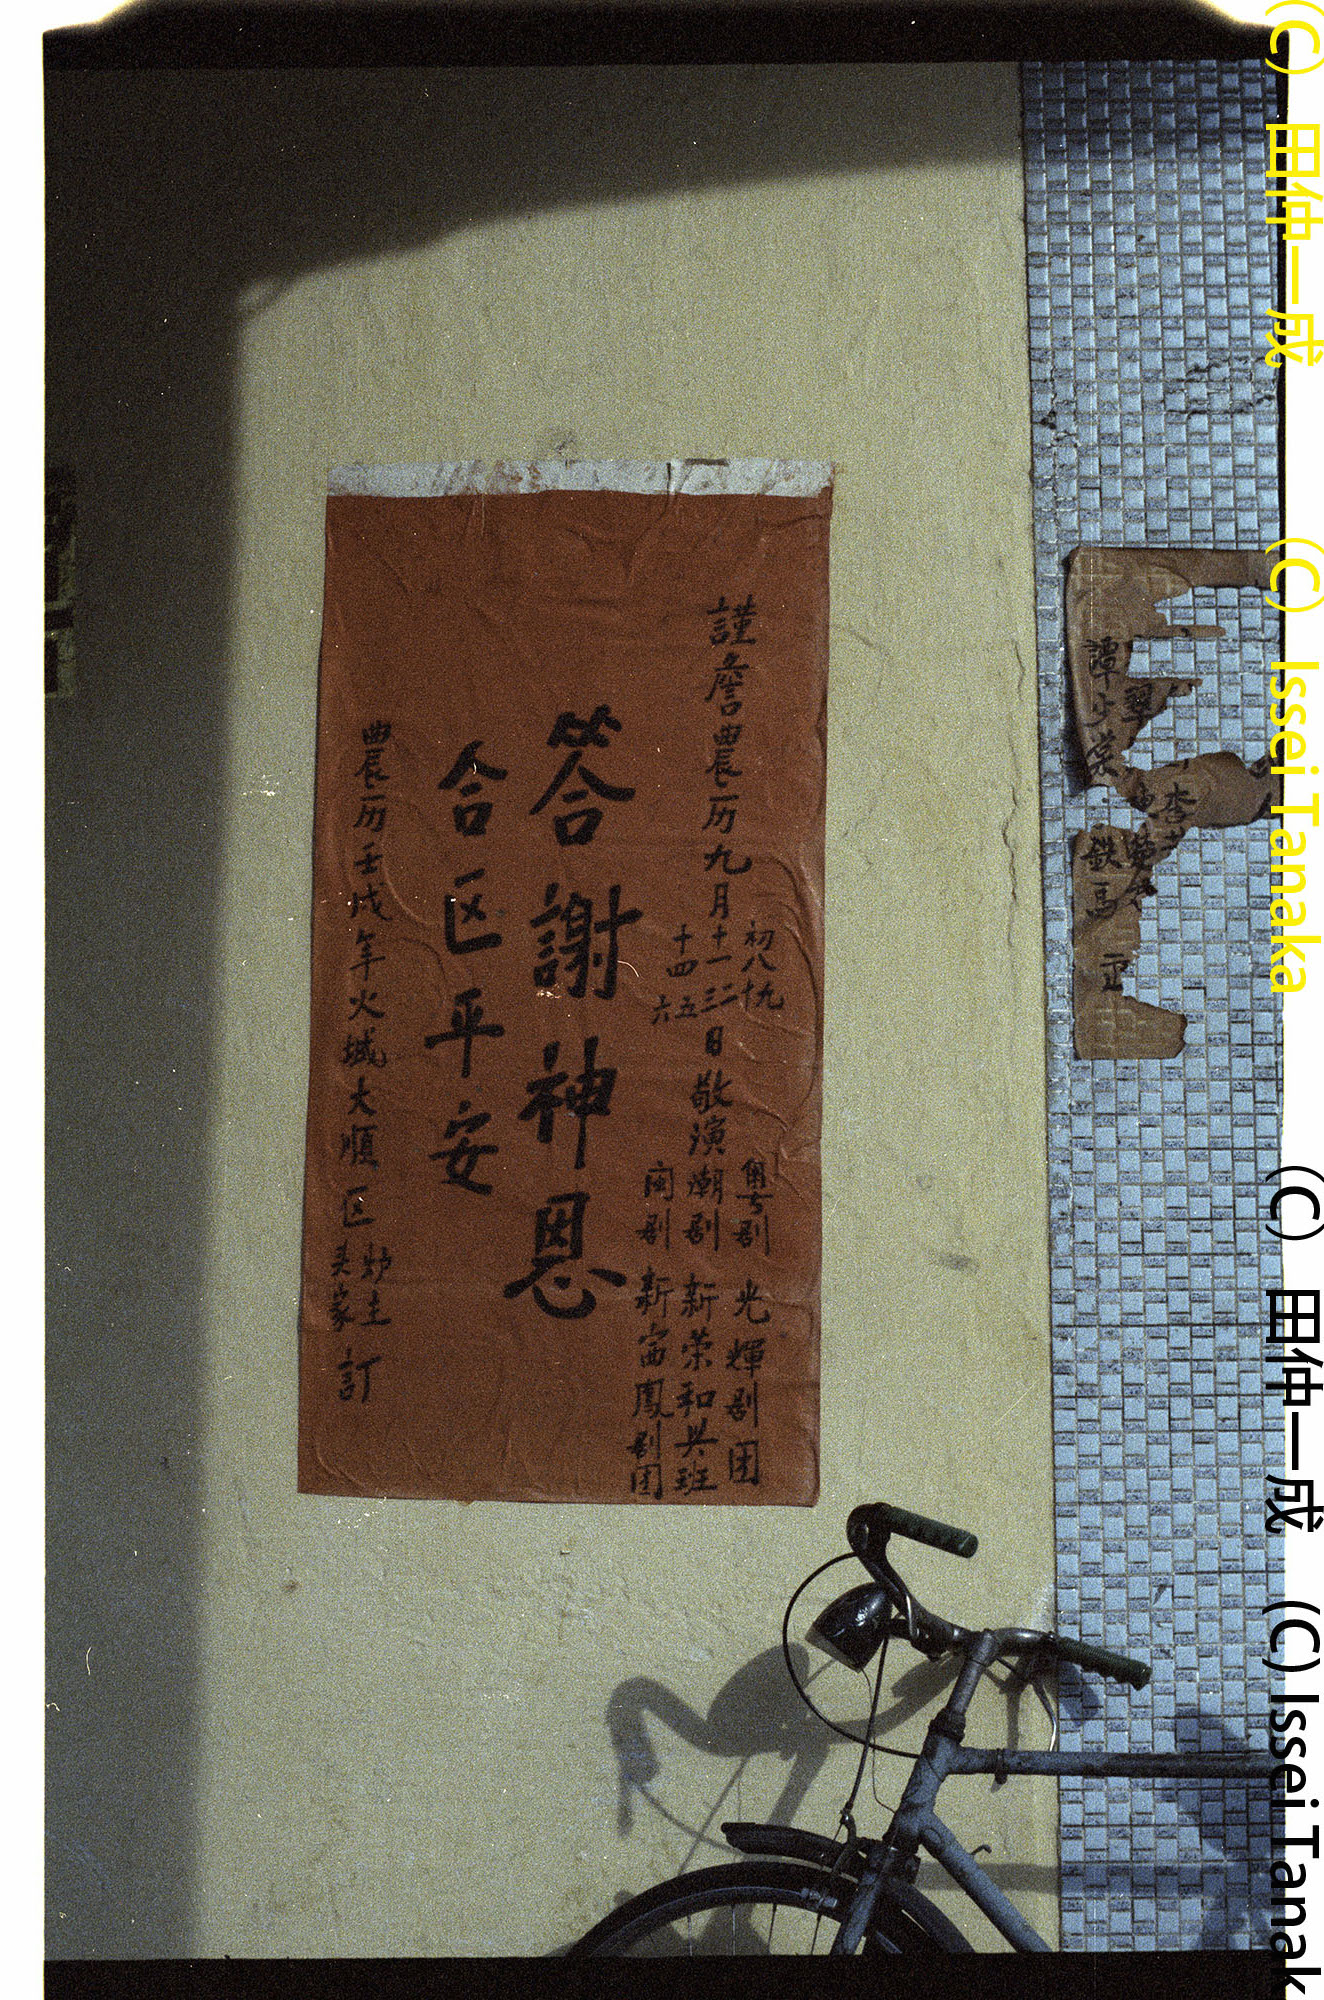 謹詹農历九月
初八九十
十一二三
十四五六
日敬演
粤剧 光輝剧团
潮剧 新荣和兴班
闽剧 新富鳳剧团
答謝神恩
合区平安
農历壬戌年火城大順区
炉主
头家
訂
譚少棠
翠
李
鉄馬
(C) 田仲一成 (C) Issei Tanaka
(C) 田仲一成 (C) Issei Tanak